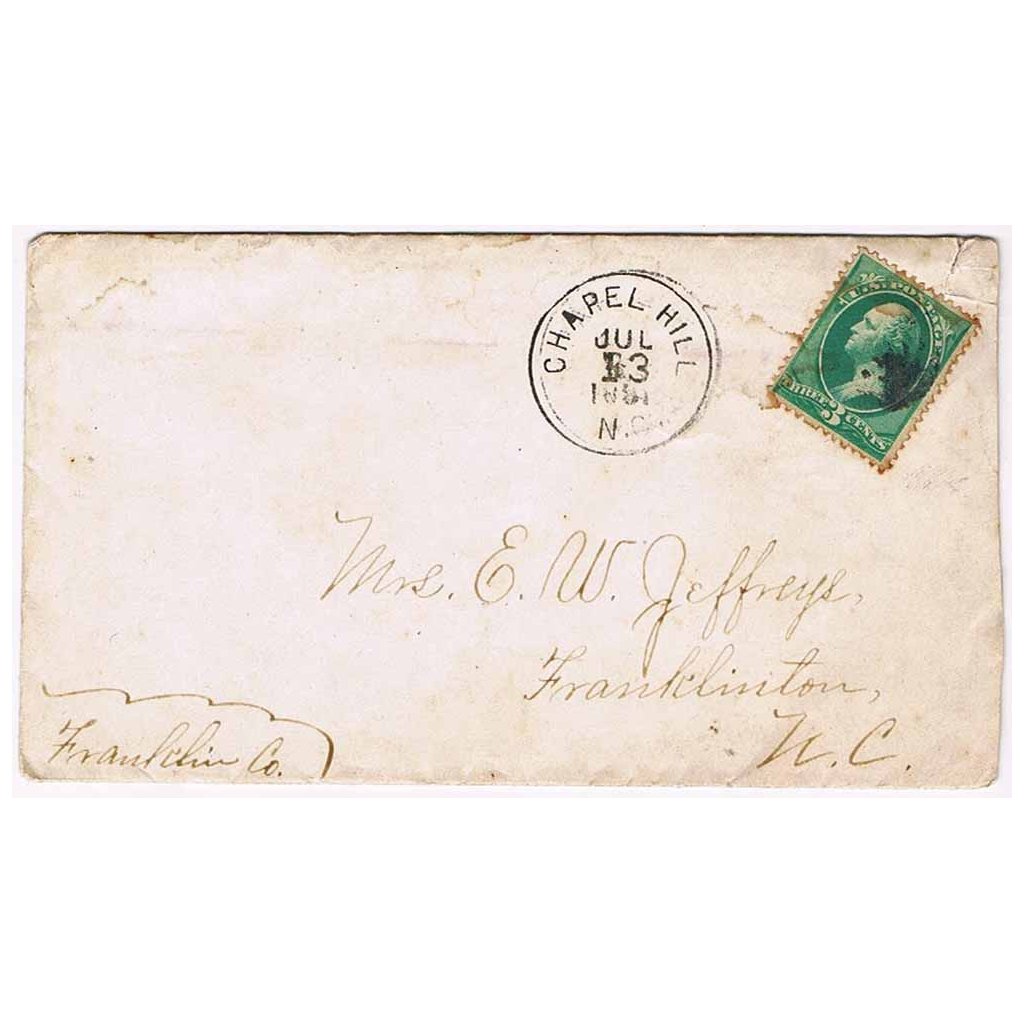 CHAPEL HILL
JUL
13
1881
N.C.
U.S. POSTAGE
THREE 3 CENTS
Mrs. E. W. Jeffreys,
Franklinton,
N. C.
Franklin Co.